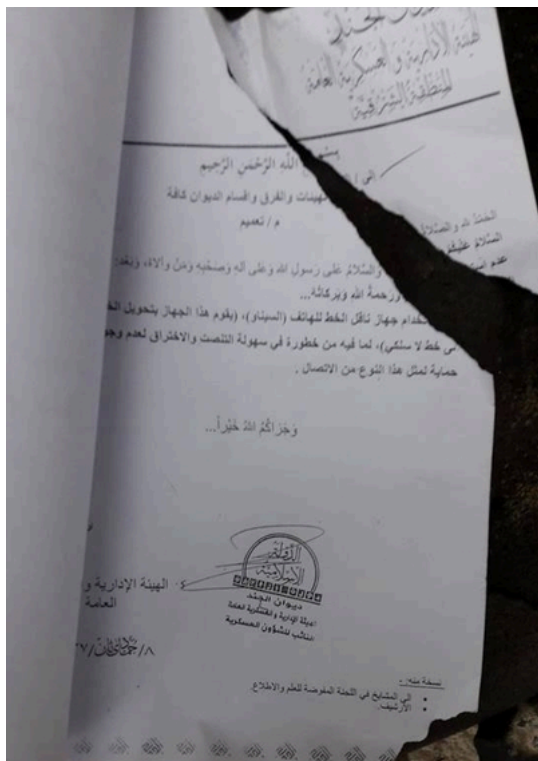 ديوان الجند
الهيئة الإدارية والعسكرية العامة
المنطقة الشرقية
بسم الله الرَّحْمَنِ الرَّحِيمِ
إلى / الهيئات والفرق واقسام الديوان كافة
م / تعميم
الحَمْدُ لله والصَّلاةُ والسَّلامُ عَلى رَسولِ الله وَعَلى آلِهِ وَصَحْبِهِ وَمَنْ وَالاهُ، وَبَعْد:
السَّلامُ عَلَيْكُمْ وَرَحمةُ اللهِ وَبَركَاتُهُ...
عدم استخدام جهاز ناقل الخط للهاتف (السيناو)، (يقوم هذا الجهاز بتحويل
خط لا سلكي)، لما فيه من خطورة في سهولة التنصت والاختراق لعدم
حماية لمثل هذا النوع من الاتصال .
وَجَزَاكُمُ اللهُ خَيْراً...
الدولة
الإسلامية
ديوان الجند
الهيئة الإدارية والعسكرية العامة
النائب للشؤون العسكرية
الهيئة الإدارية و
العامة
نسخة منه: -
إلى المشايخ في اللجنة المفوضة للعلم والاطلاع.
الأرشيف.